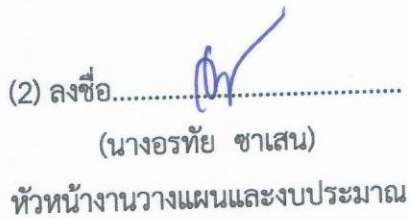 (2) ลงชื่อ........................................
(นางอรทัย ซาเสน)
หัวหน้างานวางแผนและงบประมาณ